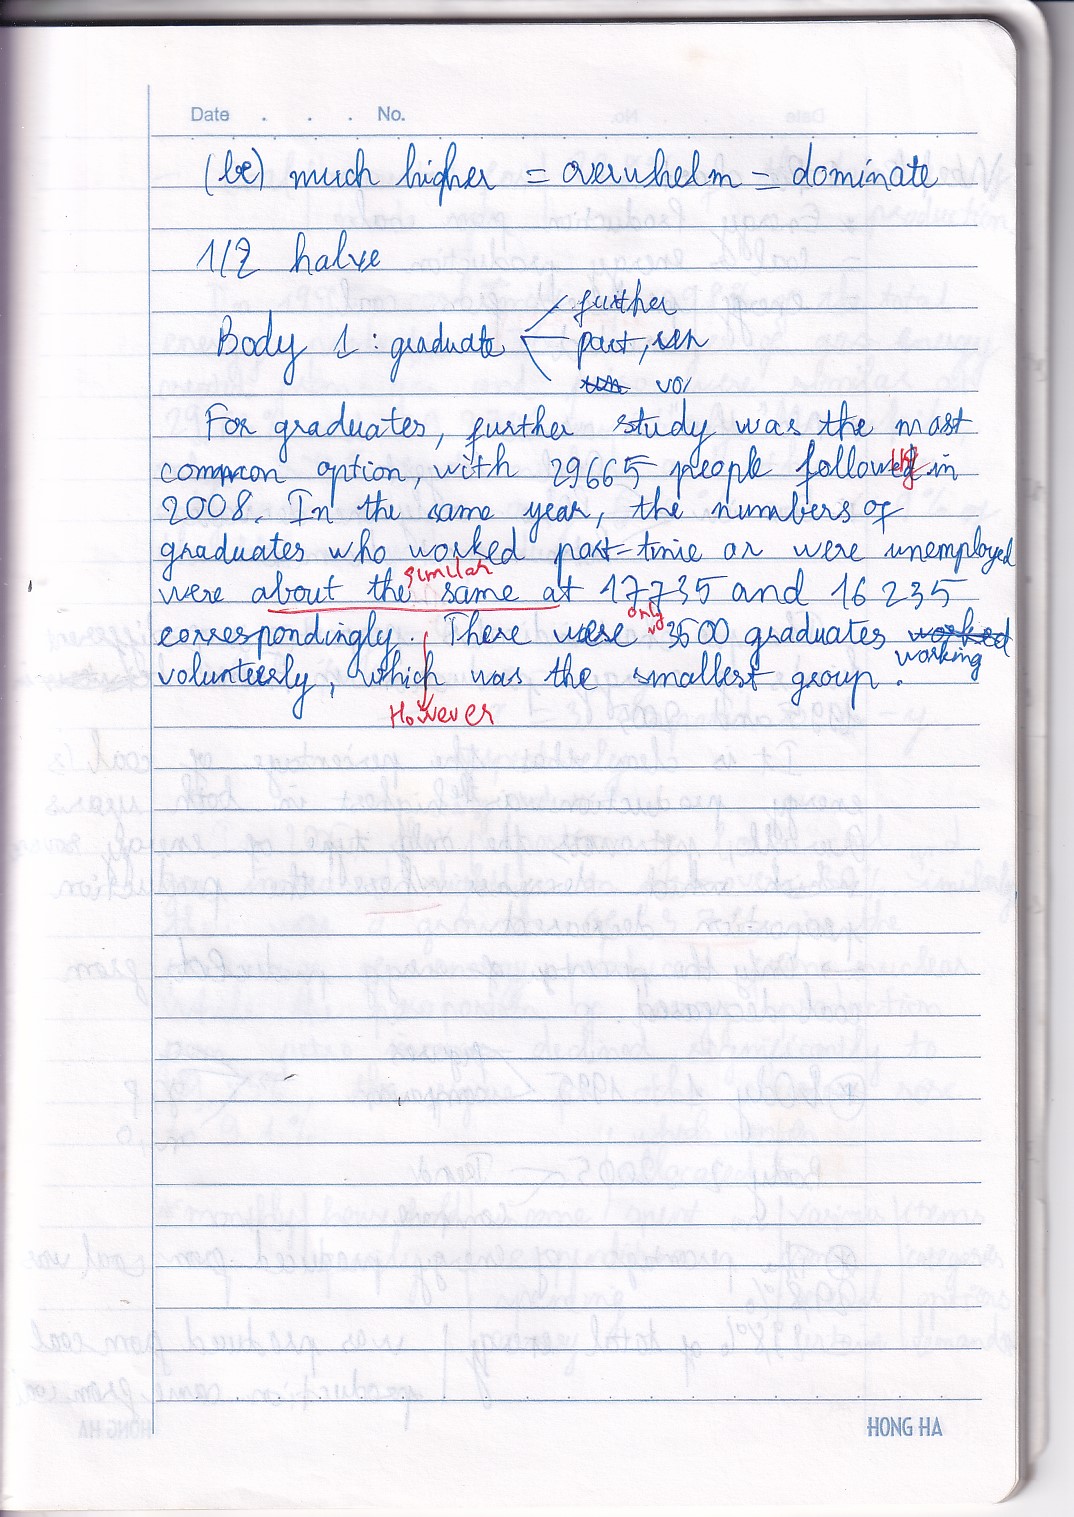 Date . . . No.
(be) much higher = overwhelm = dominate
1/2 halve
further
Body 1 : graduate part, un
vol
For graduates, further study was the most
common option, with 29665 people following in
2008. In the same year, the numbers of
graduates who worked part-time or were unemployed
similar
were about the same at 17735 and 16 235
only
correspondingly. There were 3500 graduates worked
working
volunteerly, which was the smallest group.
However
HONG HA